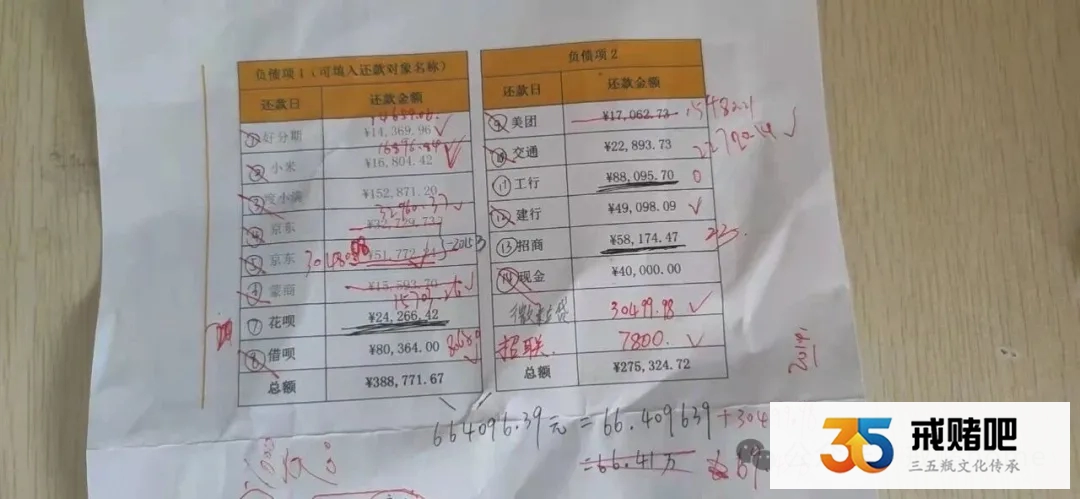 负债项1（可填入还款对象名称）
还款日 还款金额
14659.06
①好分期 ¥14,369.96 ✓
16896.84
②小米 ¥16,804.42 ✓
③度小满 ¥152,871.20
32960.37 ✓
④京东 ¥32,729.73
⑤京东 ¥51,772.24
蒙商 ¥15,593.70 ✓
⑦花呗 ¥24,266.42
⑧借呗 ¥80,364.00
总额 ¥388,771.67
负债项2
还款日 还款金额
⑨美团 ¥17,062.73
⑩交通 ¥22,893.73 ✓
⑪工行 ¥88,095.70 0
⑫建行 ¥49,098.09 ✓
⑬招商 ¥58,174.47
⑭现金 ¥40,000.00
微粒贷 30499.98 ✓
招联 7800. ✓
总额 ¥275,324.72
664096.39元=66.409639
=66.41万
35
戒赌吧
三五瓶文化传承